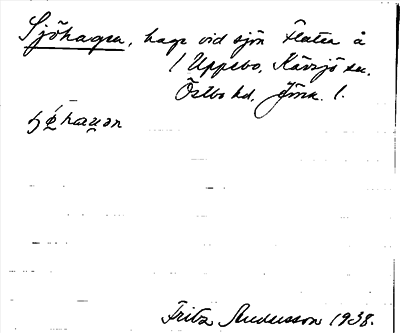 Sjöhagen, hage vid sjön Flaten å
1 Uppebo, Kävsjö sn.
Östbo hd. Jönk. l.
ʃǿhaɡən
Fritz Andersson 1938.